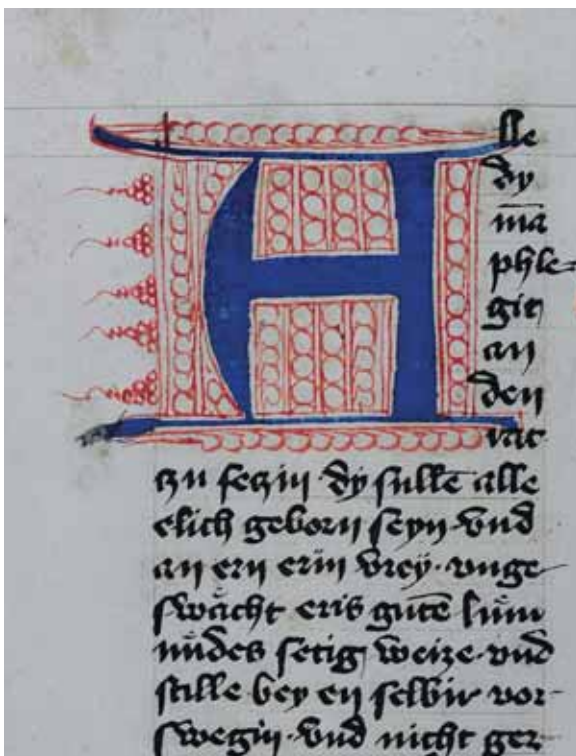 Alle
dy
mā
phle-
git
an
den
rat
czu seczin dy sullē alle
elich geborn seyn vnd
an ern erin vrey · vnge-
swächt eris gutē lüm
mūdes setig weize vnd
stille bey en selbir vor-
swegin · vnd nicht ger-